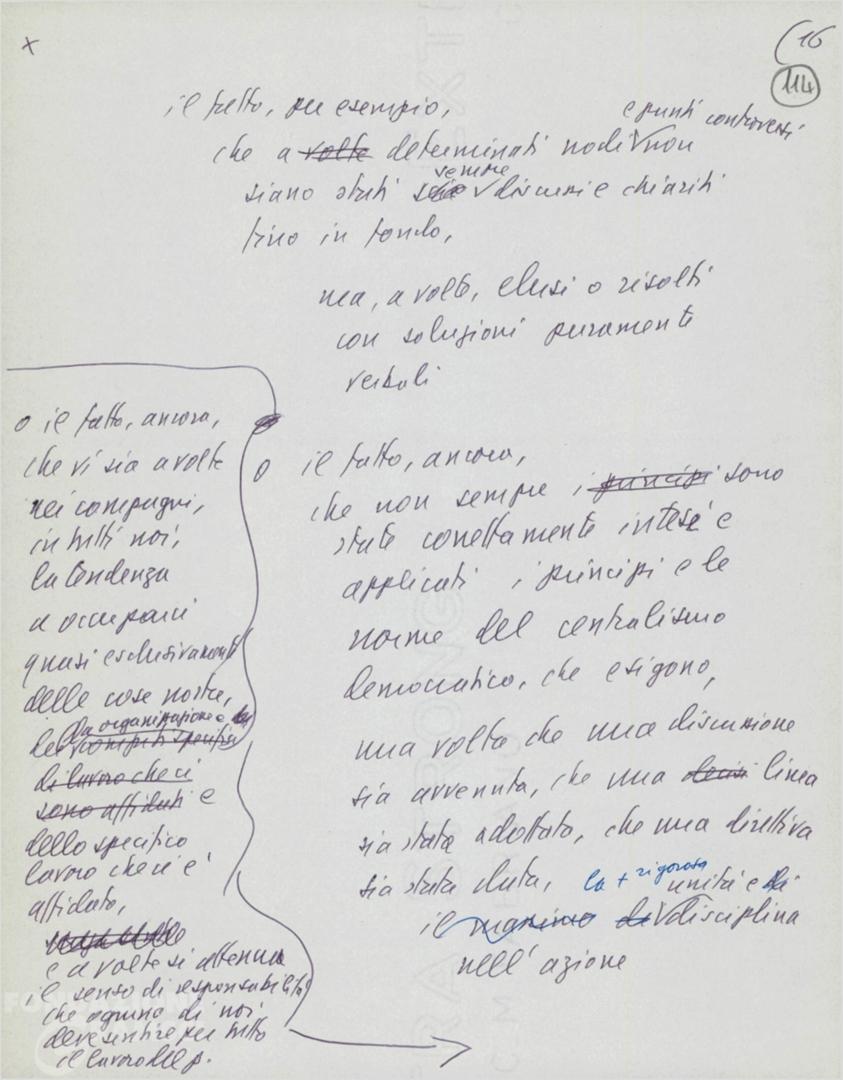 x
16
114
il fatto, per esempio,
e punti controversi
che a volte determinati nodi non
sempre
siano stati discussi e chiariti
fino in fondo,
ma, a volte, elusi o risolti
con soluzioni puramente
verbali
o il fatto, ancora,
che vi sia a volte
nei compagni,
in tutti noi,
la tendenza
a occuparci
quasi esclusivamente
delle cose nostre,
della organizzazione e
dei compiti specifici
di lavoro che ci
sono affidati e
dello specifico
lavoro che ci è
affidato,
e a volte si attenua
il senso di responsabilità
che ognuno di noi
deve sentire per tutto
il lavoro del p.
o il fatto, ancora,
che non sempre i principi sono
state correttamente intesi e
applicati i principi e le
norme del centralismo
democratico, che esigono,
una volta che una discussione
sia avvenuta, che una decisi linea
sia stata adottata, che una direttiva
sia stata data, la + rigorosa
unità e di
il massimo di disciplina
nell'azione